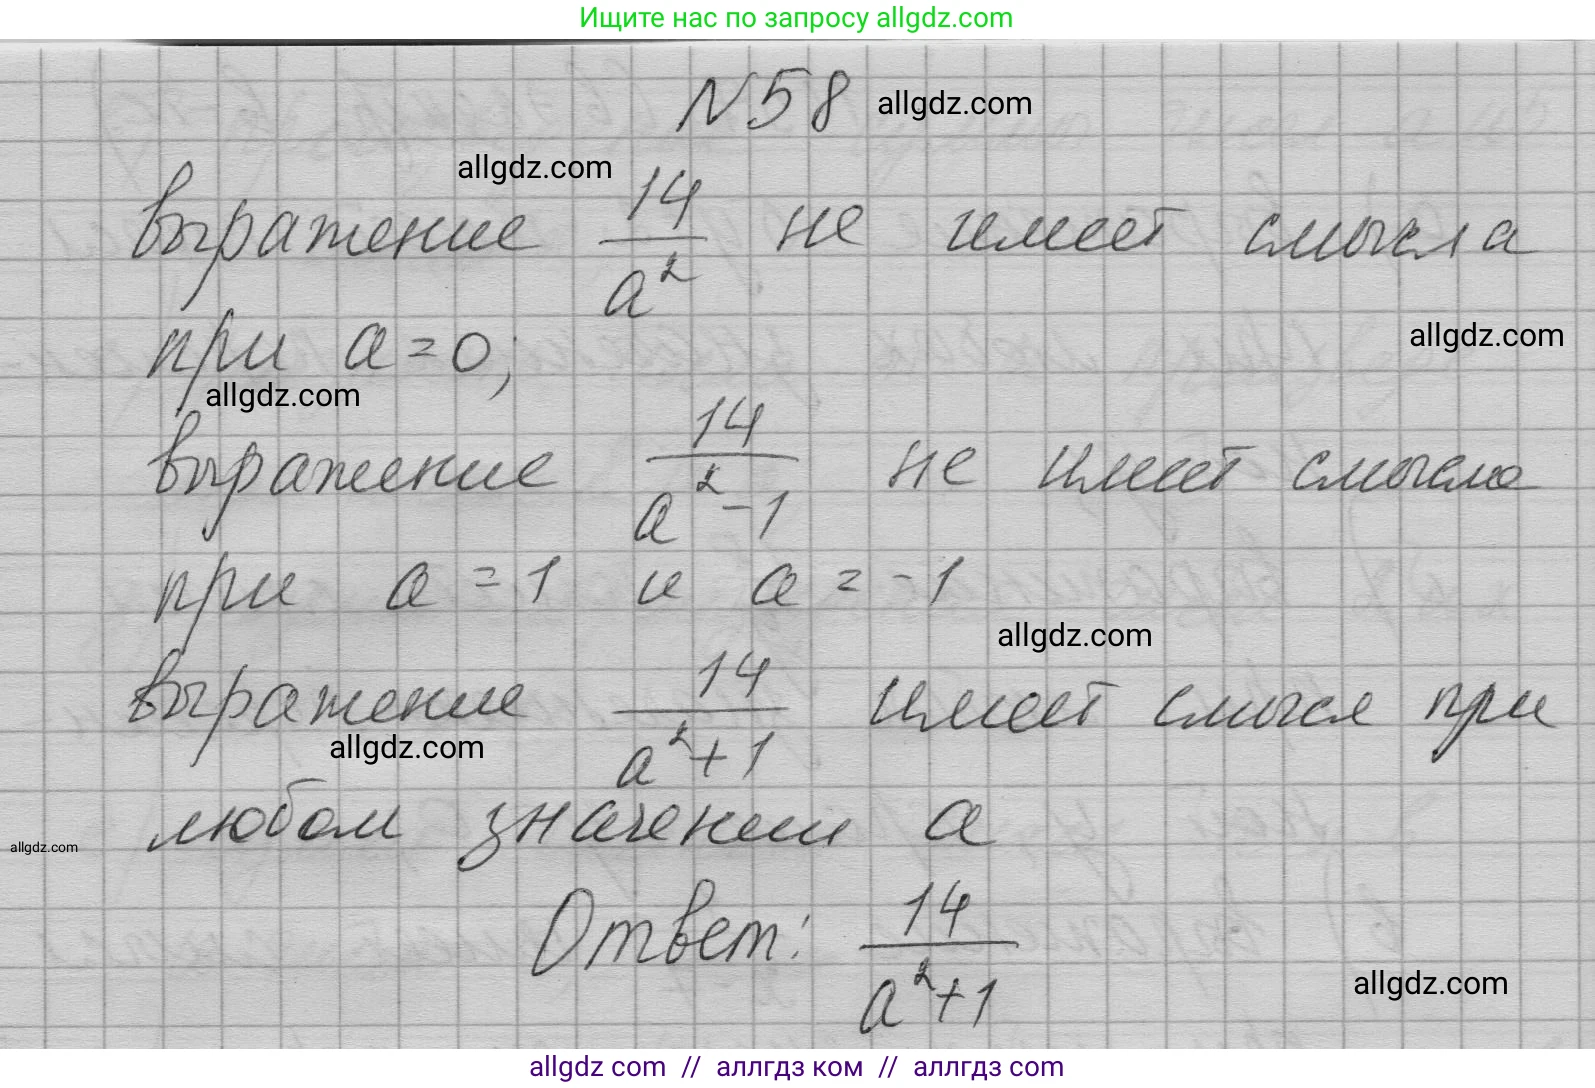 Ищите нас по запросу allgdz.com
N58 allgdz.com
allgdz.com
выражение 14/a² не имеет смысла
при a=0;
allgdz.com
allgdz.com
выражение 14/a²-1 не имеет смысла
при a=1 и a=-1
allgdz.com
выражение 14/a²+1 имеет смысл при
allgdz.com
любом значении a
allgdz.com
Ответ: 14/a²+1
allgdz.com
allgdz com // аллгдз ком // аллгдз com